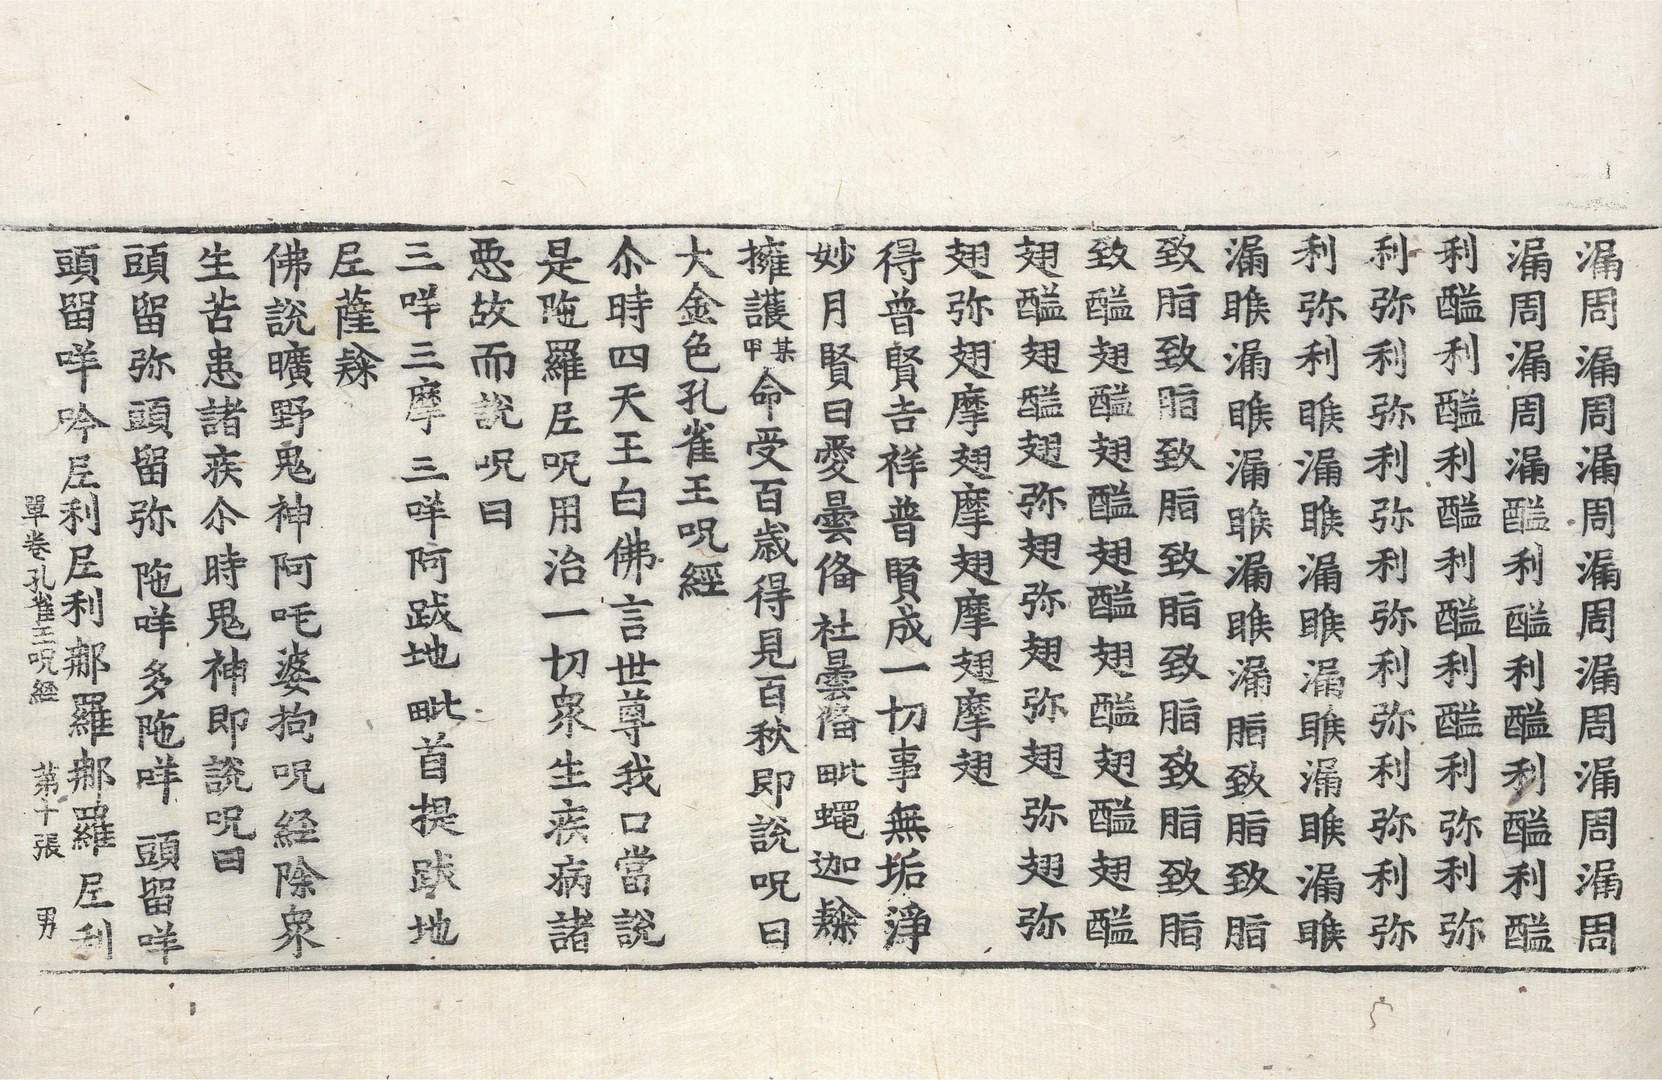 漏周漏周漏周漏周漏周漏周漏周
漏周漏周漏醯利醯利醯利醯利醯
利醯利醯利醯利醯利醯利弥利弥
利弥利弥利弥利弥利弥利弥利弥
利弥利睺漏睺漏睺漏睺漏睺漏睺
漏睺漏睺漏睺漏睺漏脂致脂致脂
致脂致脂致脂致脂致脂致脂致脂
致醯翅醯翅醯翅醯翅醯翅醯翅醯
翅醯翅醯翅弥翅弥翅弥翅弥翅弥
翅弥翅摩翅摩翅摩翅摩翅
得普賢吉祥普賢成一切事無垢淨
妙月賢日愛曇俻社曇俻毗蠅迦䅾
擁護某甲命受百歳得見百秋即說呪曰
大金色孔雀王呪經
尒時四天王白佛言世尊我口當說
是陁羅𡰱呪用治一切衆生疾病諸
惡故而說呪曰
三咩三摩三咩阿跋地毗首提跋地
𡰱薩䅾
佛說曠野鬼神阿吒婆拘呪經除衆
生苦患諸疾尒時鬼神即說呪曰
頭留弥頭留弥陁咩多陁咩頭留咩
頭留咩吟𡰱利𡰱利那羅那羅𡰱利
單卷孔雀王呪經 第十張 男